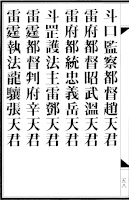 斗口監察都督趙天君
雷府都督昭武溫天君
雷府都統忠義岳天君
斗罡護法主雷鄧天君
雷霆都督判府辛天君
雷霆執法龍驤張天君